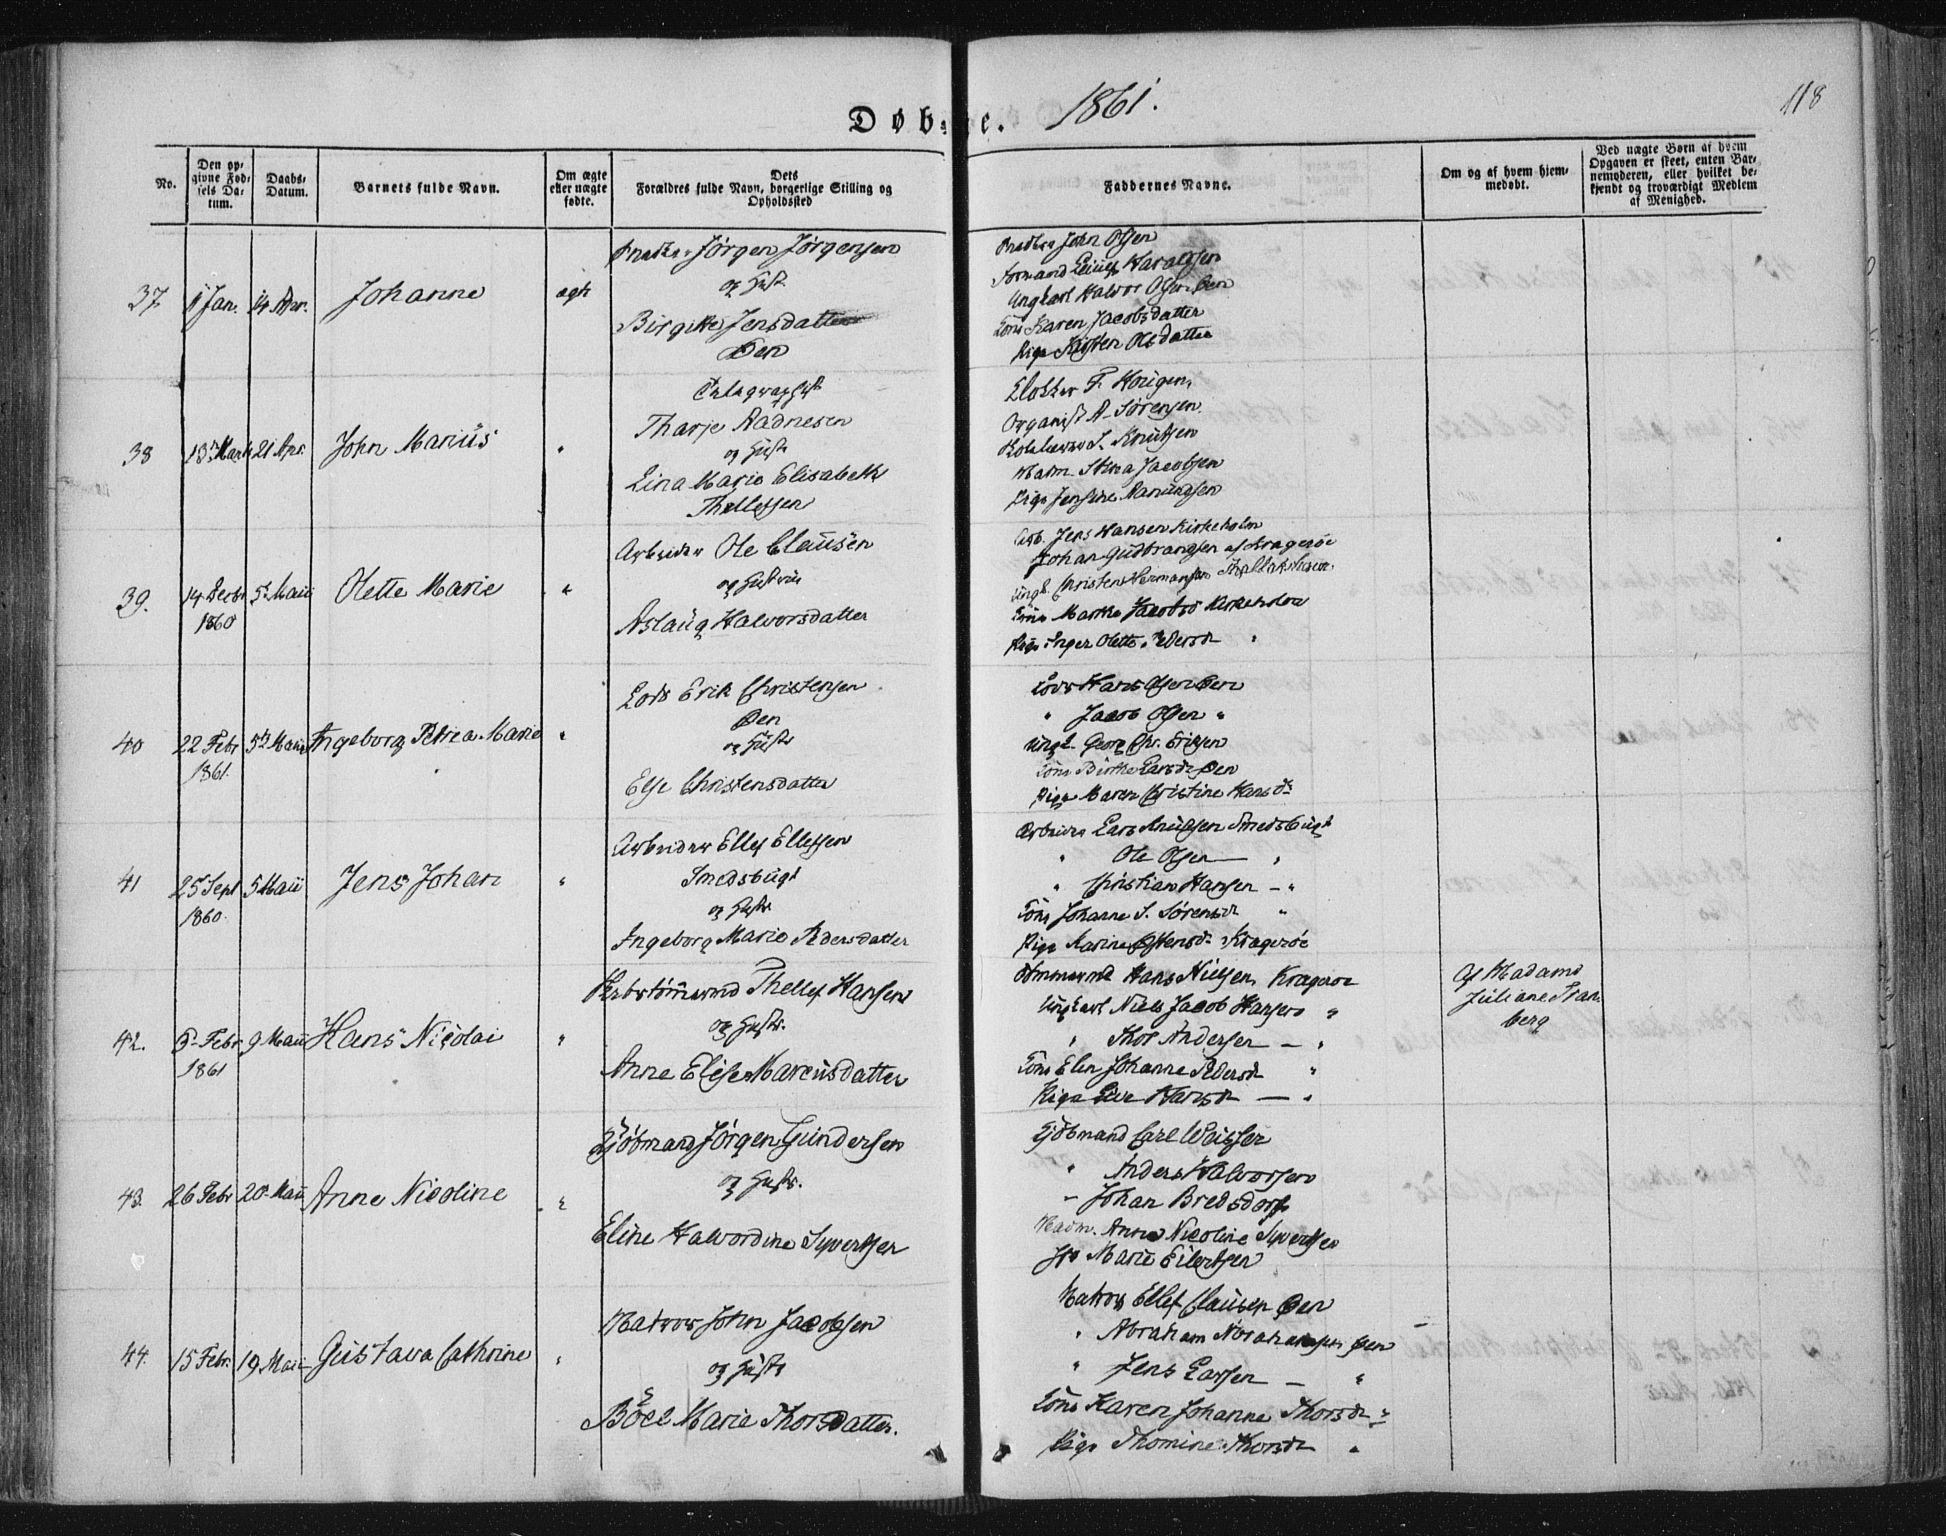 Døb- e. 1861.
118
No.
Den op-
givne Fød-
sels Da-
tum.
Daabs-
Datum.
Barnets fulde Navn.
Om ægte
eller nægte
fødte.
Dets
Forældres fulde Navn, borgerlige Stilling og
Opholdssted
Faddernes Navne.
Om og af hvem hjem-
medøbt.
Ved nægte Børn af hvem
Opgaven er skeet, enten Bar-
nemoderen, eller hvilket be-
kjendt og troværdigt Medlem
af Menighed.
37
Jan. 14 Apr.
Johanne
ægte
Jörgen Jörgensen
og Hust.
Birgitte Jensdatter
Öen
John Olsen
Haraldsen
Ungkarl Halvor Olsen Öen
Kone Karen Jacobsdatter
Pige Kirsten Olsdatter
38
13 Marts 21 Apr.
John Marius
"
Telegraphist
Tharje Aadnesen
og Hustr
Lina Marie Elisabeth
Thellefsen
Klokker F. Horigen,
Organist A. Sörensen
S. Knutsen
Madm. Jacobsen
Pige Jensine
39.
14 Decbr 5 Maii
1860
Olette Marie
"
Arbeider Ole Clausen
og Hustru
Aslaug Halvorsdatter
Arb. Jens Hansen Kirkeholm
Johan Gudbrandsen af Kragerøe
Ungk. Christen Hermansen
Kone Marthe Jacobsd Kirkeholm
Pige Inger Olette Pedersd "
40
22 Febr 5 Maii
1861.
Ingeborg Petrea Marie
"
Lods Erik Christensen
Öen
og Hustr
Else Christensdatter
Lods Hans Olsen Öen
" Jacob Olsen "
Ungk. Georg Chr. Eriksen
Kone Birthe Larsd Öen
Pige Maren Christine Hansdr
41
25 Sept 5 Maii
1860.
Jens Johan
"
Arbeider Ellef Ellefsen
Smedsbugt
og Hustr
Ingeborg Marie Pedersdatter
Arbeider Lars Knudsen Smedsbugt
" Ole Olsen "
" Christian Hansen - "
Kone Johanne S. Sörensd "
Pige Karine Kragerøe
42.
Febr 9 Maii
1861
Hans Nicolai
"
Thellef Hansen
og Hustr.
Anne Elise Marcusdatter
Tömmermd Hans Nielsen Kragerøe
Ungkarl Niels Jacob Hansen "
" Thor Andersen - "
Kone Elen Johanne Pedersd "
Pige Hansd - "
Af Madame
Juliane
berg
43.
26 Febr 20 Maii
Anne Nicoline
"
Kjöbmand Jörgen Gundersen
og Hustr.
Eline Halvordine Syvertsen
Kjöbmand Carl Weisser
" Anders Halvorsen
- Johan Bredsdorf
Madm. Anne Nicoline Syvertsen
Marie Eilertsen
44.
15 Febr. 19 Maii
Gustava Cathrine
"
Matros John Jacobsen
og Hustr
Böel Marie Thorsdatter.
Matros Ellef Clausen Öen
" Abraham Öen
" Jens Larsen - "
Kone Karen Johanne Thorsd "
Pige Thomine Thorsd "